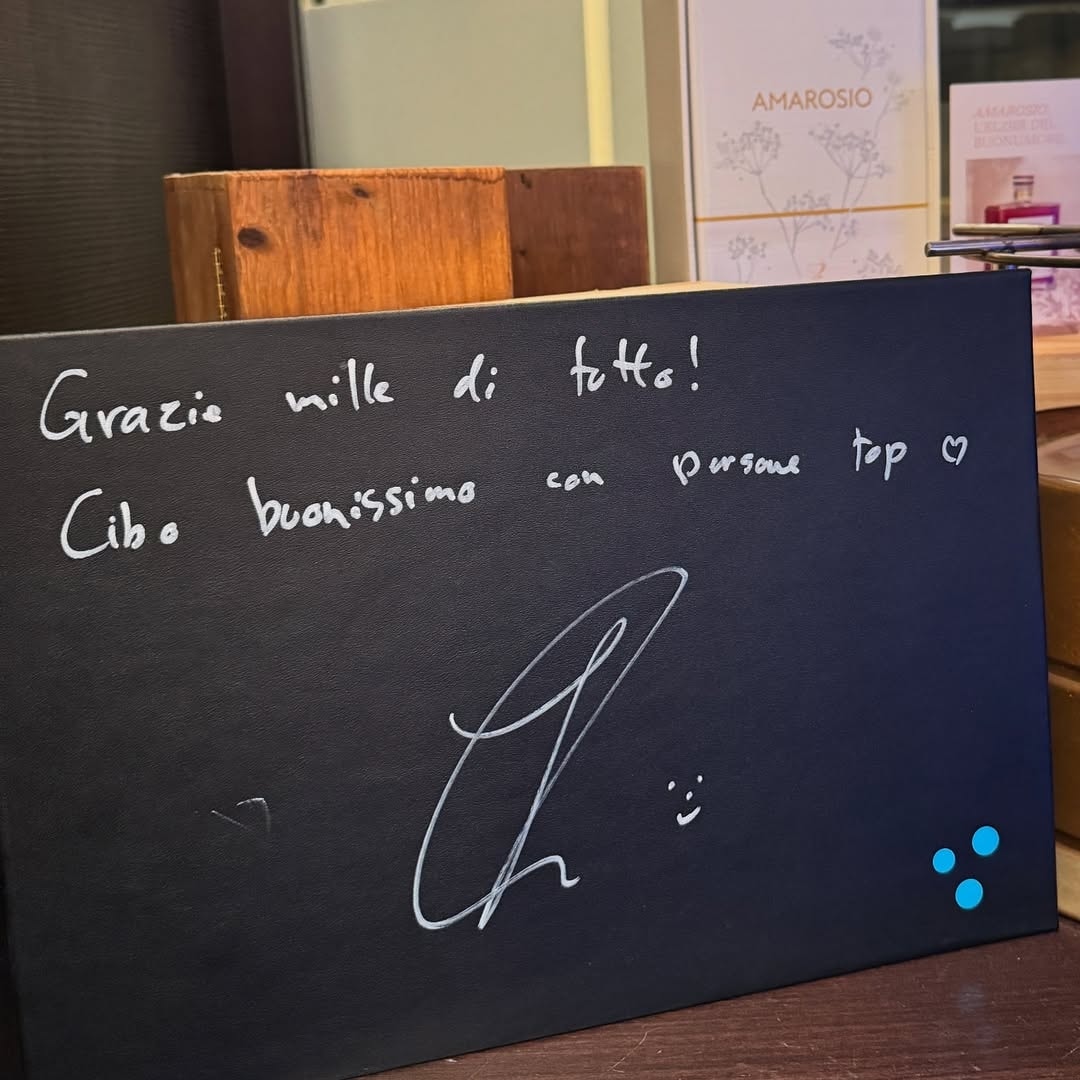 AMAROSIO
AMAROSIO,
L'ELISIR DEL
BUONUMORE
Grazie mille di tutto!
Cibo buonissimo con persone top ♡